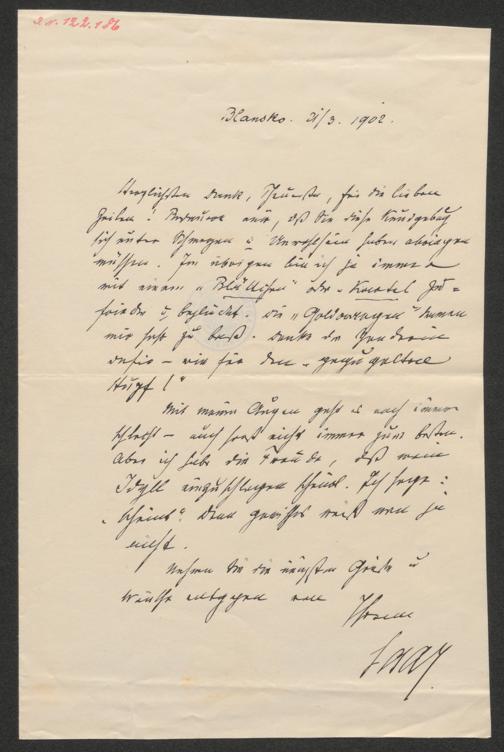 I.N. 122.186
Blansko. 21/3. 1902.
Herzlichsten Dank, Theuerste, für die lieben
Zeilen! Bedaure nur, daß Sie diese Kundgebung
sich unter Schmerzen u Unwohlsein haben abringen
müssen. Im übrigen bin ich ja immer
mit einem „Blättchen“ oder Kartel zu=
frieden u beglückt. Die „Goldorangen“ kamen
mir sehr zu paß. Danke der Spenderin
dafür – wie für den
Mit meinen Augen geht es noch immer
schlecht – auch sonst nicht immer zum besten.
Aber ich habe die Freude, daß mein
Idyll einzuschlagen scheint. Ich sage:
„scheint“. Denn gewisses weiß man ja
nicht.
Nehmen Sie die innigsten Grüße u
Wünsche entgegen von
Ihrem
Saar